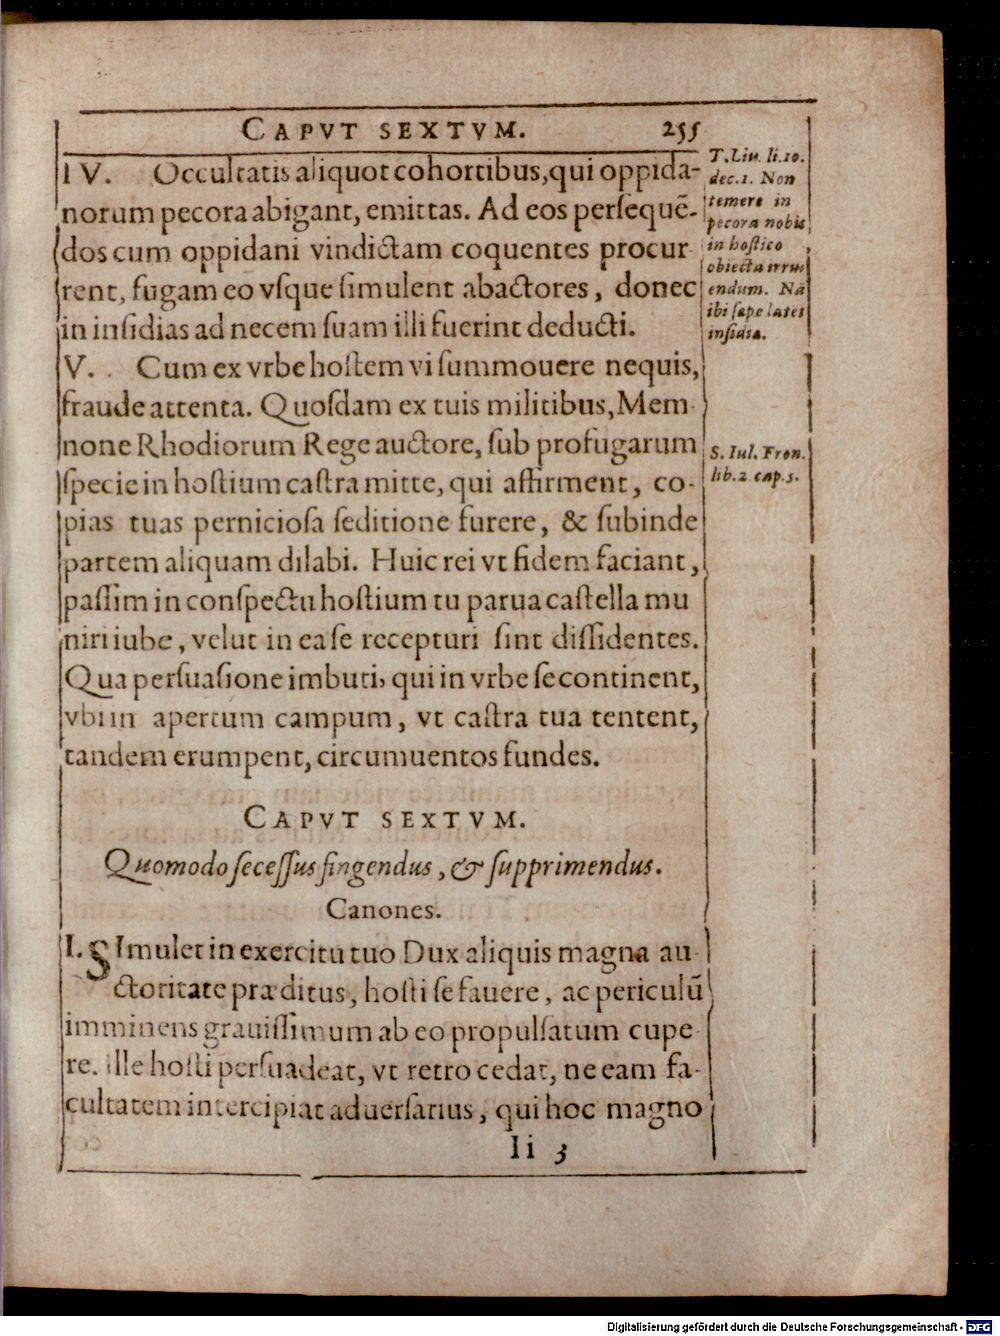 CAPVT SEXTVM. 255
IV. Occultatis aliquot cohortibus, qui oppida-
norum pecora abigant, emittas. Ad eos perſequẽ-
dos cum oppidani vindictam coquentes procur
rent, fugam eo vſque ſimulent abactores, donec
in inſidias ad necem ſuam illi fuerint deducti.
V. Cum ex vrbe hoſtem vi ſummouere nequis,
fraude attenta. Quoſdam ex tuis militibus, Mem-
none Rhodiorum Rege auctore, ſub profugarum
ſpecie in hoſtium caſtra mitte, qui affirment, co-
pias tuas pernicioſa ſeditione furere, & ſubinde
partem aliquam dilabi. Huic rei vt fidem faciant,
paſſim in conſpectu hoſtium tu parua caſtella mu
niri iube, velut in ea ſe recepturi ſint diſſidentes.
Qua perſuaſione imbuti, qui in vrbe ſe continent,
vbi in apertum campum, vt caſtra tua tentent,
tandem erumpent, circumuentos fundes.
T. Liu. li. 10.
dec. 1. Non
temere in
pecora nobis
in hoſtico
obiecta irru
endum. Nã
ibi ſæpe latet
inſidia.
S. Iul. Fron.
lib. 2 cap. 5.
CAPVT SEXTVM.
Quomodo ſeceſſus fingendus, & ſupprimendus.
Canones.
I. SImulet in exercitu tuo Dux aliquis magna au-
ctoritate præditus, hoſti ſe fauere, ac periculũ
imminens grauiſſimum ab eo propulſatum cupe
re. ille hoſti perſuadeat, vt retro cedat, ne eam fa-
cultatem intercipiat aduerſarius, qui hoc magno
Ii 3
Digitalisierung gefördert durch die Deutsche Forschungsgemeinschaft - DFG